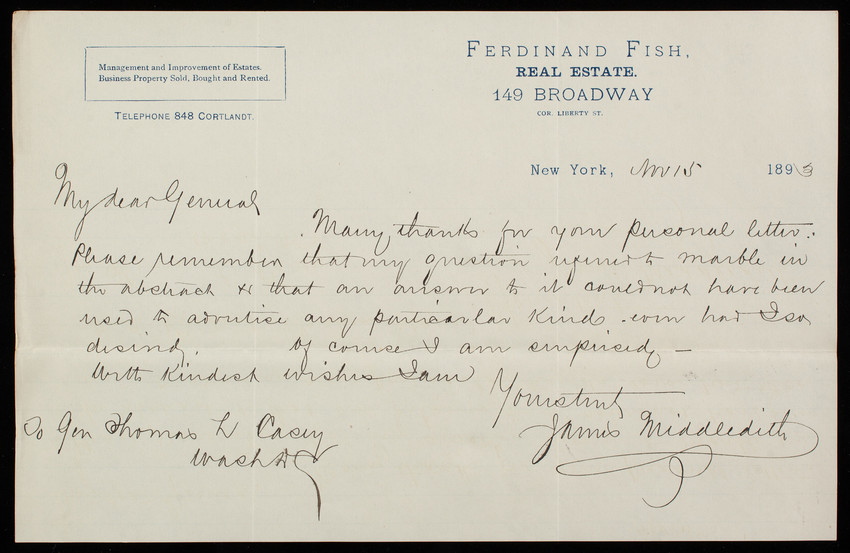 Management and Improvement of Estates.
Business Property Sold, Bought and Rented.
TELEPHONE 848 CORTLANDT.
FERDINAND FISH,
REAL ESTATE.
149 BROADWAY
COR. LIBERTY ST.
New York, Nov 15 1893
My dear General
Many thanks for your personal letter.
Please remember that my question referred to marble in
the abstract & that an answer to it could not have been
used to advertise any particular kind even had I so
desired. Of course I am surprised —
With kindest wishes I am
Yours truly
James Middledith
To Gen Thomas L Casey
Wash DC